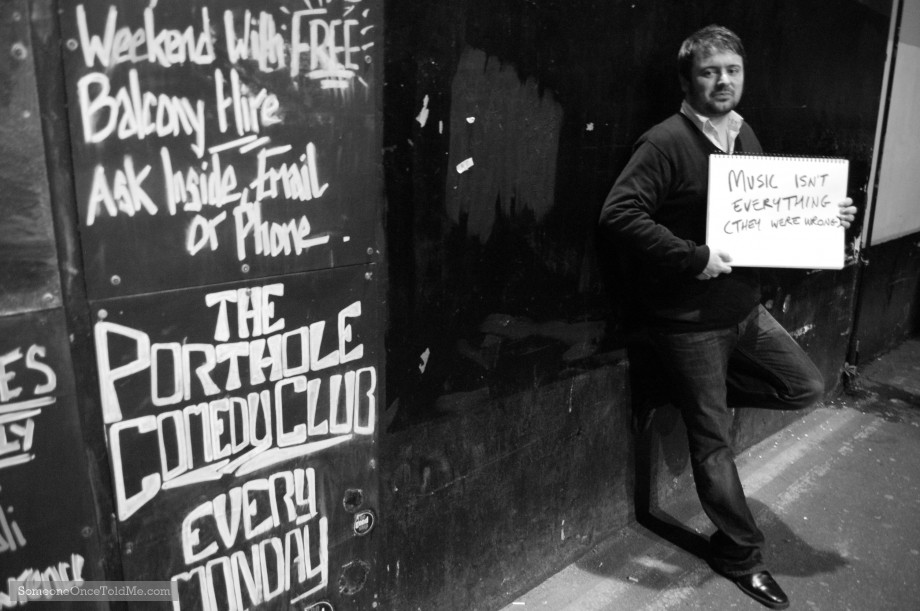 Weekend With FREE
Balcony Hire
Ask Inside, Email
or Phone.
THE
PORTHOLE
COMEDY CLUB
EVERY
MONDAY
ES
MUSIC ISN'T
EVERYTHING
(THEY WERE WRONG)
SomeoneOnceTold.Me.com